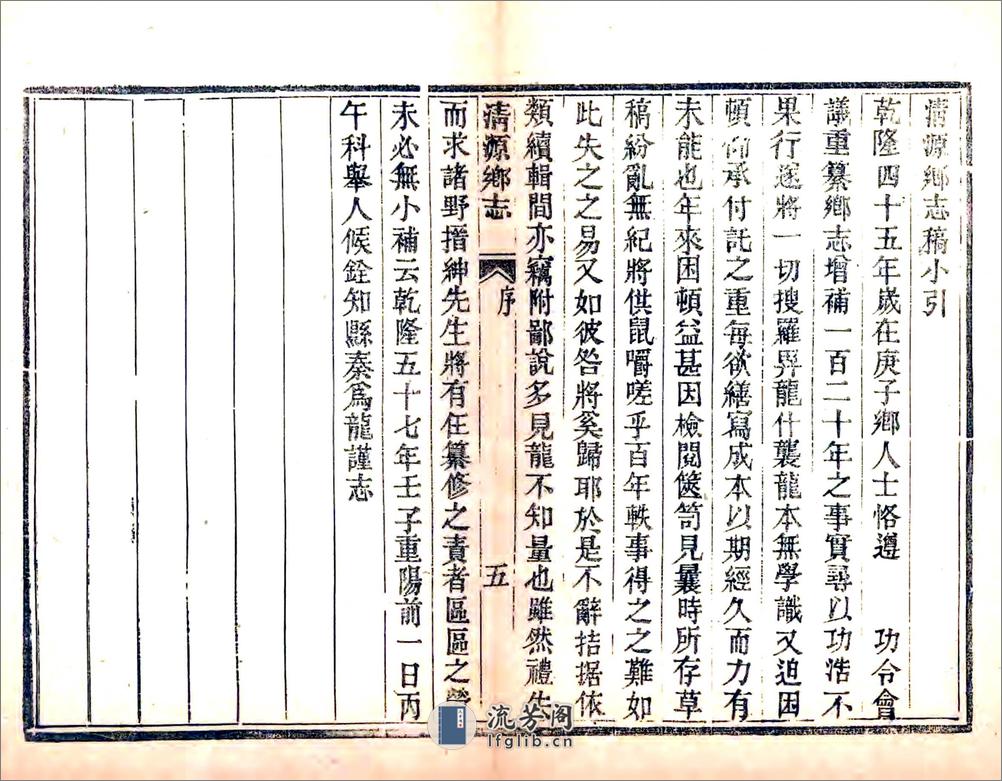 清源鄉志稿小引
乾隆四十五年歲在庚子鄉人士恪遵　功令會
議重纂鄉志增補一百二十年之事實尋以功浩不
果行遂將一切搜羅畀龍什襲龍本無學識又迫困
頓仰承付託之重每欲繕寫成本以期經久而力有
未能也年來困頓益甚因檢閱篋笥見曩時所存草
稿紛亂無紀將供鼠嚼嗟乎百年軼事得之之難如
此失之之易又如彼咎將奚歸耶於是不辭拮据依
類續輯間亦竊附鄙說多見龍不知量也雖然禮失
清源鄉志　序　五
而求諸野搢紳先生將有任纂修之責者區區之
未必無小補云乾隆五十七年壬子重陽前一日丙
午科舉人候銓知縣秦爲龍謹志
流芳阁
lfglib.cn